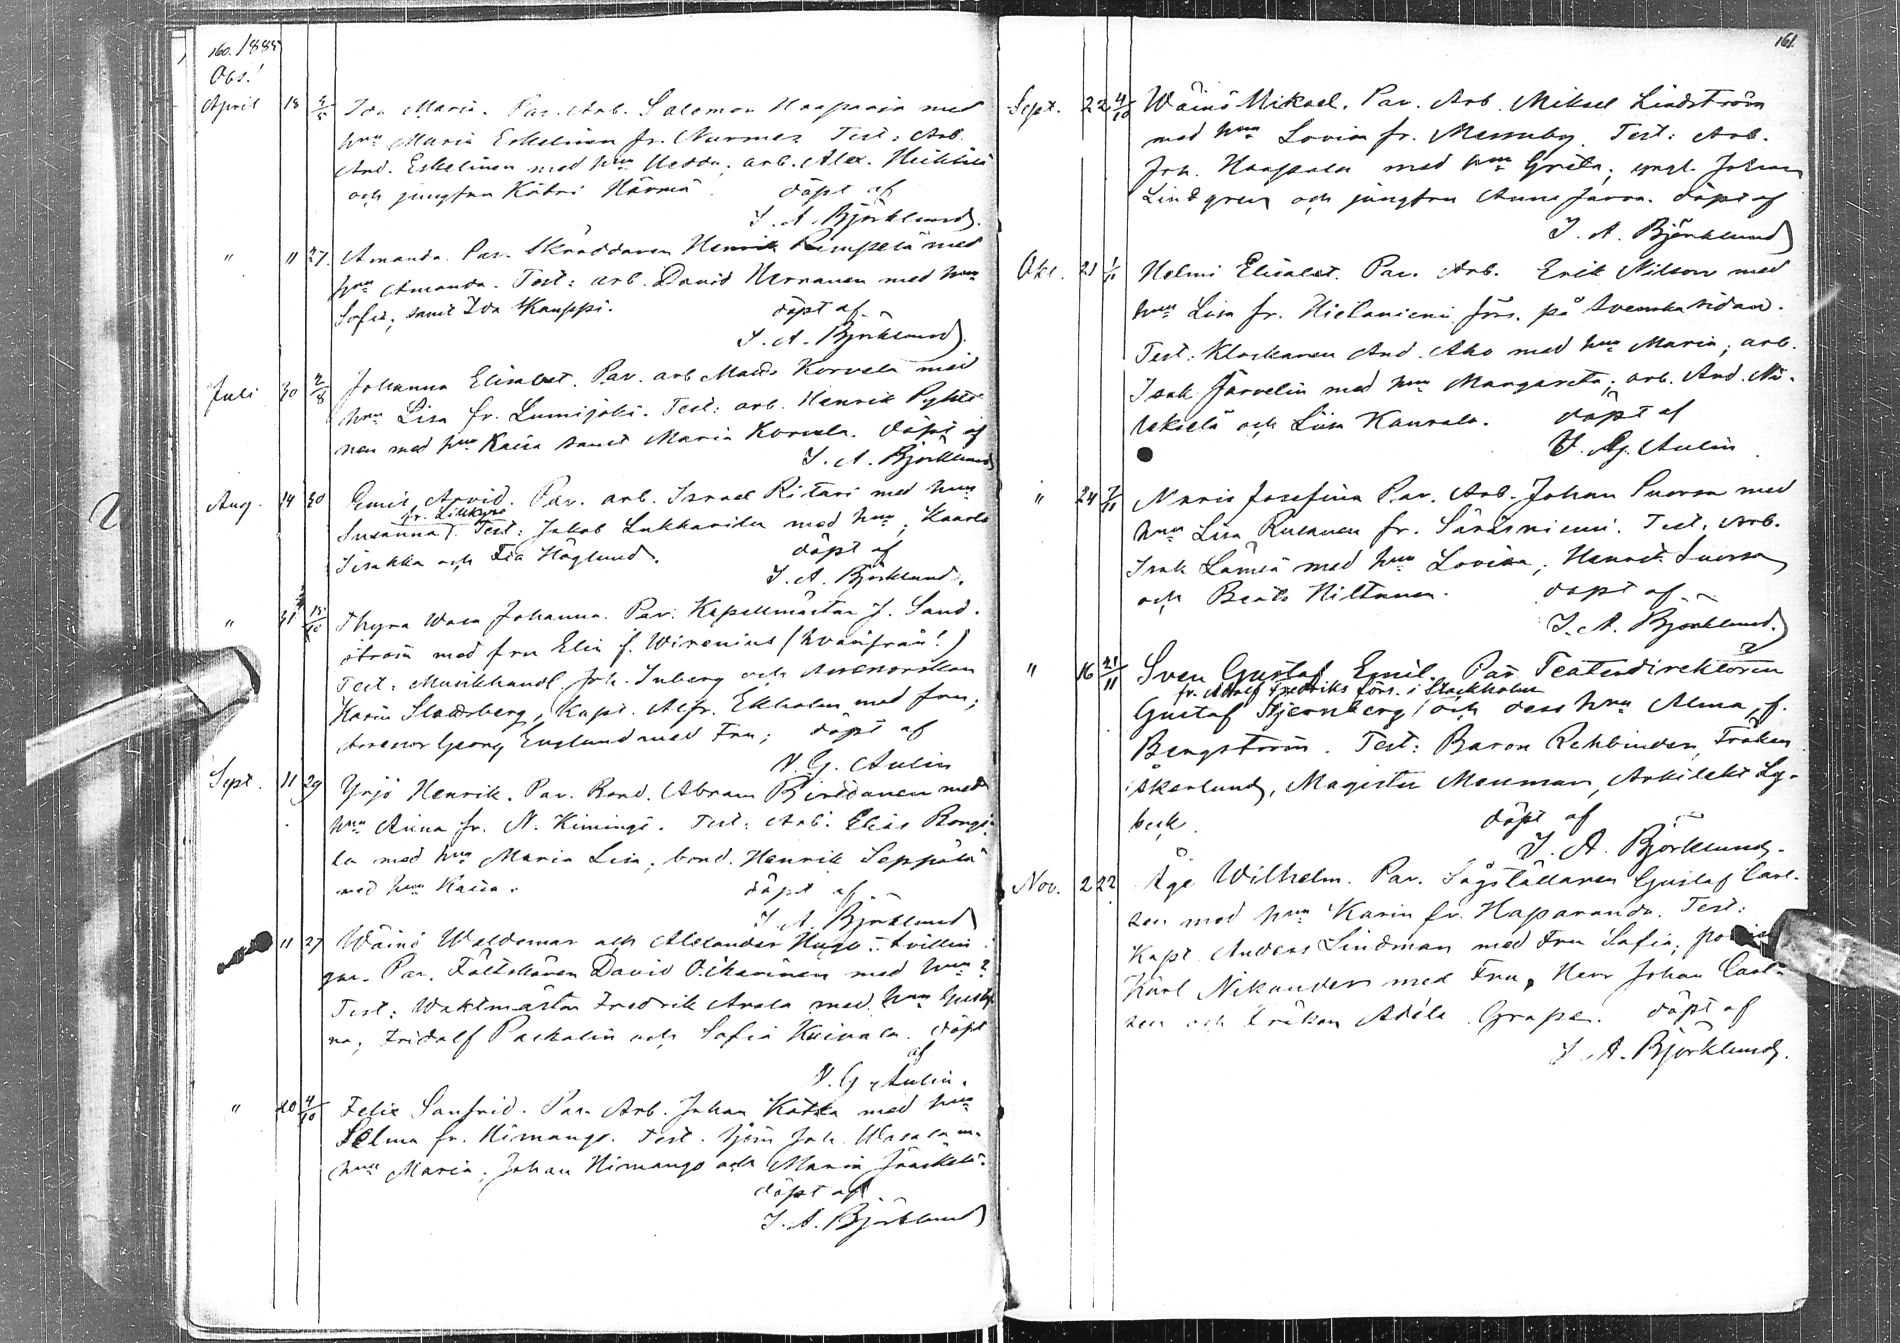 160. 1885
Obs.!
April 18 Ida Maria. Par. Arb. Salomon Haaparaja med
hru Maria Eskelinen fr. Nurmes Test: Arb.
And. Eskelinen med hru Hedda; arb. Alex. Heikkilä
och jungfru Kätri Härmä. döpt af
J. A. Björklund.
" 11 27. Amanda. Par. Skräddaren Henrik Rimpelä med
hru Amanda. Test: arb. David Hernanen med hru
Sofia, samt Ida Kauppi. döpt af
J. A. Björklund.
Juli 30 2/8 Johanna Elisabet. Par. arb Matts Korvela med
hru Lisa fr. Lumijoki. Test: arb. Henrik Pyhti
nen med hru Kaisa samt Maria Korvela. döpt af
J. A. Björklund
Aug. 14 30 Emil Arvid. Par. arb. Israel Ritari med hru
fr. Lillkyro
Susanna. Test: Jakob Lukkarila med hru; Kaarlo
Iisakka och Fia Höglund. döpt af
J. A. Björklund.
" 31 15/10 Thyra Wasa Johanna. Par. Kapellmästar J. Sand-
ström med fru Elin f. Wirenius (hvarifrån!)
Test: Musikhandl. Joh. Inberg och Assessorskan
Karin Slottsberg, Kapt. Alfr. Ekholm med fru;
Assessor Georg Englund med Fru; döpt af
V. G. Aulin
Sept. 11 29 Yrjö Henrik. Par. Bond. Abram med
hru Anna fr. N. Kiminge. Test: Arb. Elias Ronga-
la med hru Maria Lisa; bond. Henrik Seppälä
med hru Kaisa. döpt af
J. A. Björklund
11 27 Wäinö Waldemar och Alexander Hugo Tvillin-
gar. Par. Fältskären David Oikarinen med hru?
Test: Waktmästar Fredrik Arola med hru Gusta-
va; Fridolf Packalin och Sofia Kuivala. döpt
af
V. G. Aulin.
" 20 4/10 Felix Sanfrid. Par. Arb. Johan Kotka med hru
Selma fr. Himango. Test. Joh. Wasala m.
hru Maria; Johan Himango och Maria Jääskelä.
döpt af
J. A. Björklund
161.
Sept. 22 4/10 Wäinö Mikael. Par. Arb. Mikael Lindström
med hru Lovisa fr. Messuby. Test: Arb.
Joh. Haapala med hru Greta; yngl. Johan
Lindgren och jungfru Anna Jaara. döpt af
J. A. Björklund
Okt. 21 1/11 Helmi Elisabet. Par. Arb. Erik Nilsson med
hru Lisa fr. Hietaniemi förs. på Svenska sidan.
Test: Klockaren And. Aho med hru Maria; arb.
Isak Järvelin med hru Margareta; arb. And. Nä-
tekselä och Liisa Kaurala. döpt af
V. G. Aulin
" 24 7/11 Naris Josefina Par. Arb. Johan Suorsa med
hru Lisa Rusanen fr. Säräisniemi. Test. Arb.
Isak Lämsä med hru Lovisa; Henrik Suorsa
och Beata Hiltunen. döpt af
J. A. Björklund.
" 16 21/11 Sven Gustaf Emil. Par. Teaterdirektören
fr. Adolf Fredriks förs. i Stockholm
Gustaf Stjernberg och dess hru Alma, f.
Bengström. Test: Baron Rehbinder, Fröken
Åkerlund, Magister Menman, Arkitekt Ly-
beck. döpt af
J. A. Björklund.
Nov. 2 22 Åge Wilhelm. Par. Sågställaren Gustaf Carl-
sen med hru Karin fr. Haparanda. Test:
Kapt. Anders Lindman med Fru Sofia;
Karl Nikander med Fru, Herr Johan Carl-
sen och Fröken Adéle Grape. döpt af
J. A. Björklund.
2